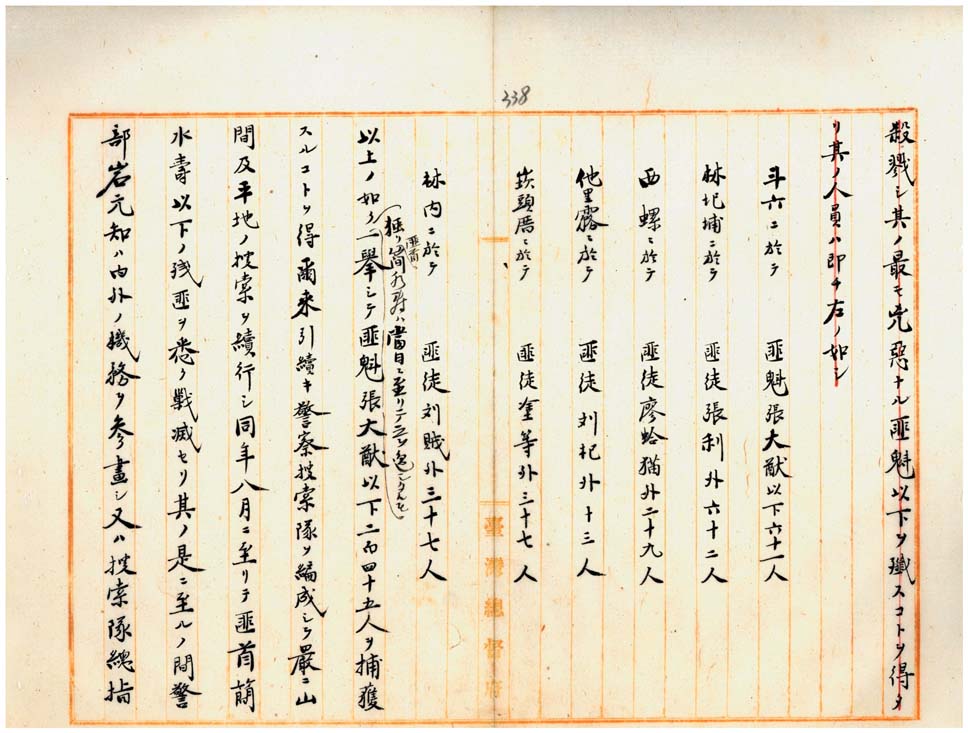 338
殺戮シ其ノ最モ兇惡ナル匪魁以下ヲ殲スコトヲ得タ
リ其ノ人員ハ即チ左ノ如シ
斗六ニ於テ 匪魁張大猷以下六十一人
林圯埔ニ於テ 匪徒張利外六十二人
西螺ニ於テ 匪徒廖蛤猫外二十九人
他里霧ニ於テ 匪徒刘杞外十三人
崁頭厝ニ於テ 匪徒塗等外三十七人
林内ニ於テ 匪徒刘賊外三十七人
匪首
簡水壽ハ當日ニ至リテ
以上ノ如ク一擧シテ匪魁張大猷以下二百四十五人ヲ捕獲
スルコトヲ得爾來引續キ警察搜索隊ヲ編成シテ嚴ニ山
間及平地ノ搜索ヲ續行シ同年八月ニ至リテ匪首簡
水壽以下ノ残匪ヲ悉ク戩滅セリ其ノ是ニ至ルノ間警
部岩元知ハ内外ノ機務ヲ參畫シ又ハ搜索隊總指
臺灣總督府